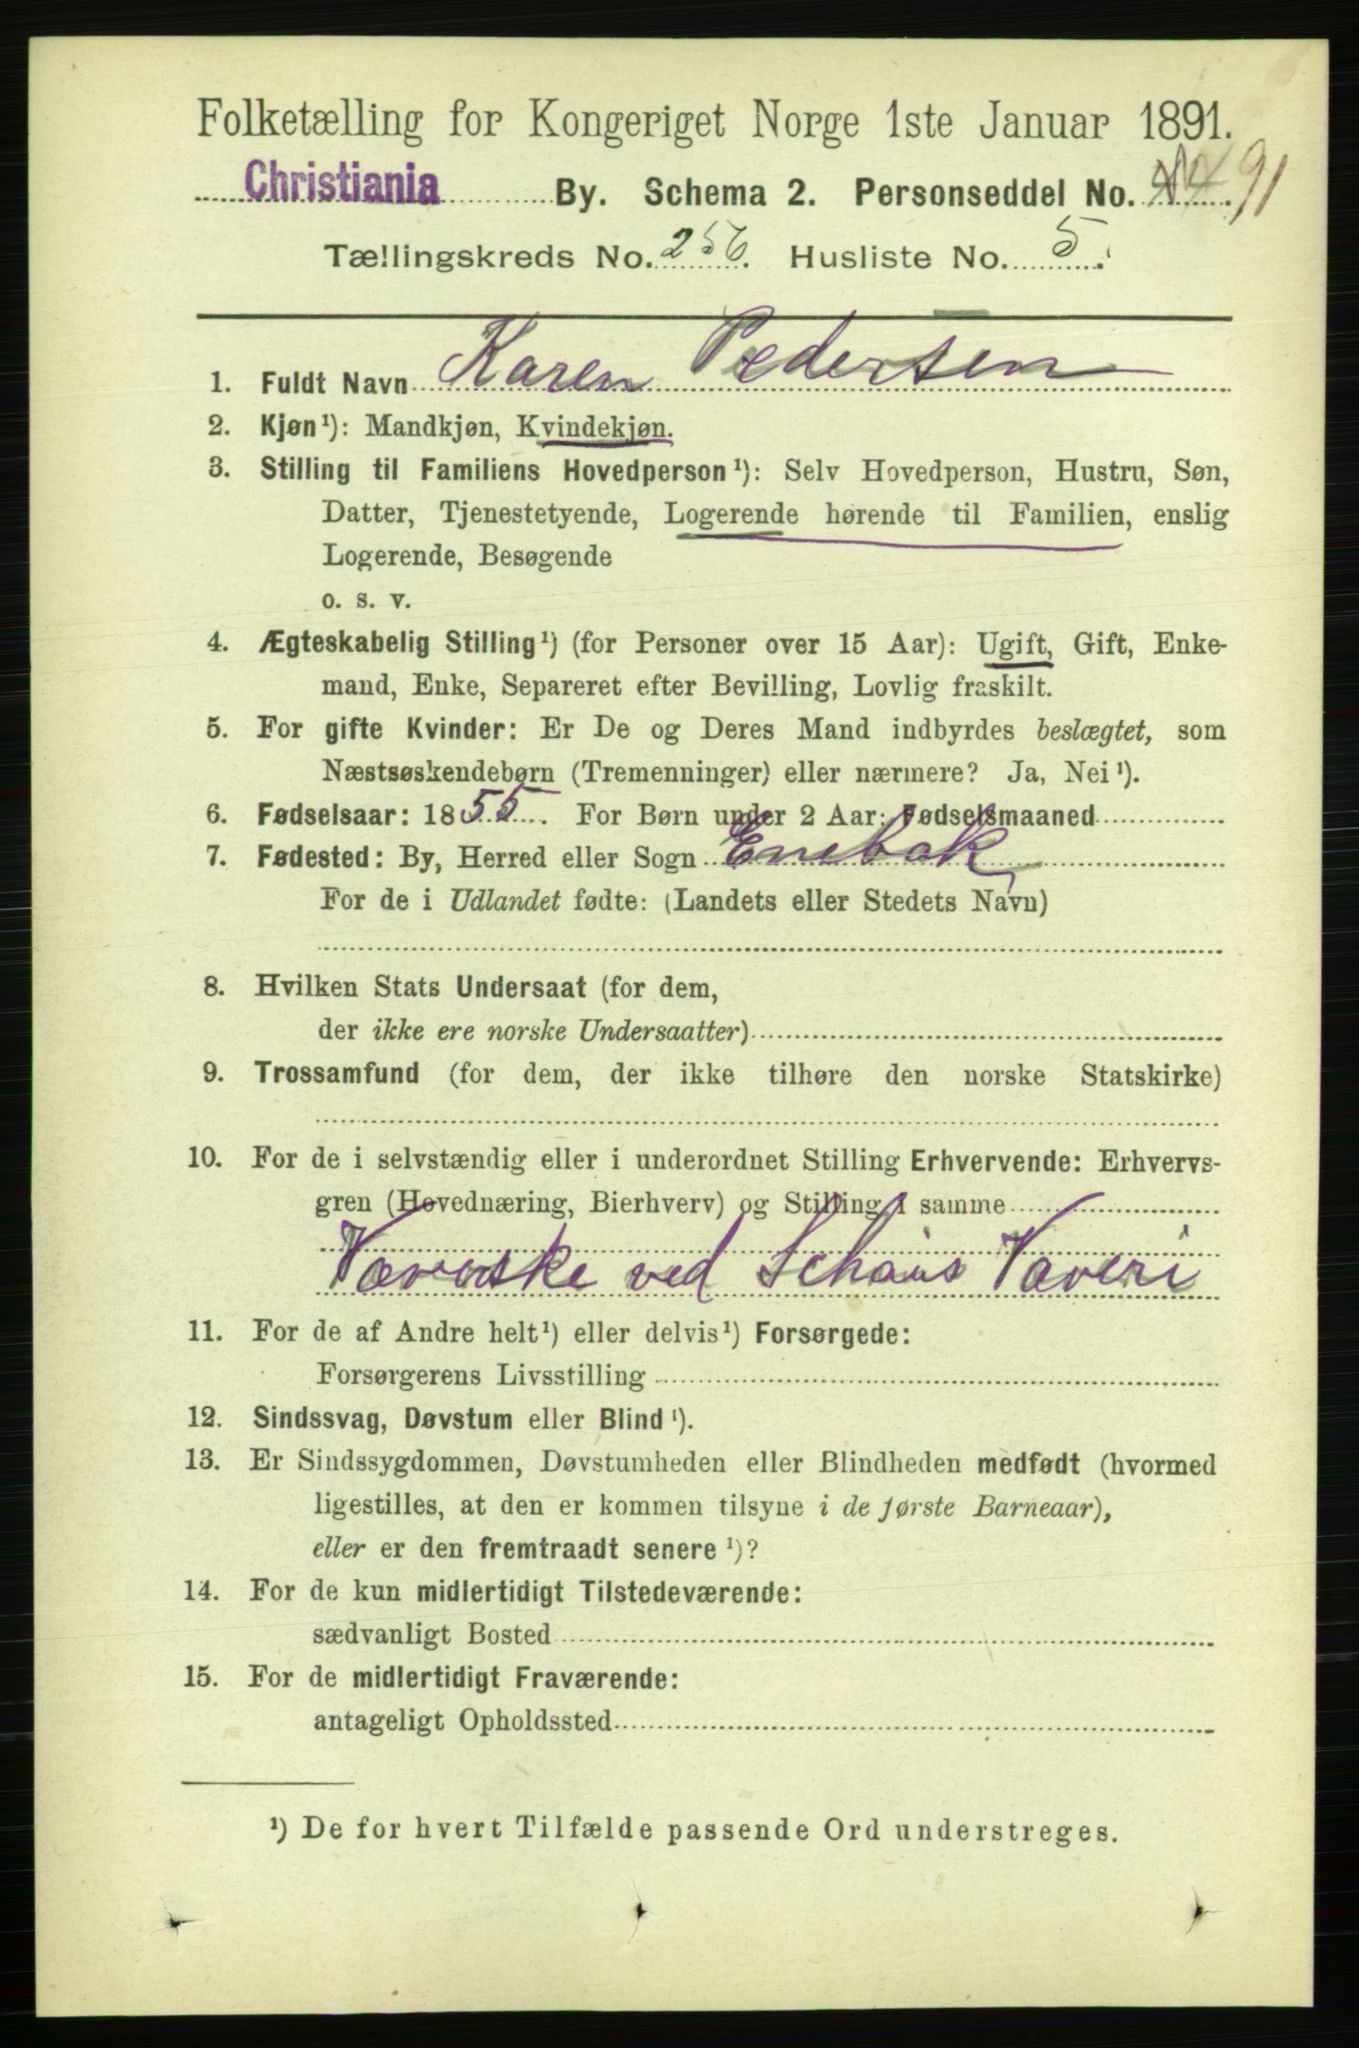 Folketælling for Kongeriget Norge 1ste Januar 1891.
Christiania By. Schema 2. Personseddel No. 91
Tællingskreds No. 256. Husliste No. 5.
1. Fuldt Navn Karen Pedersen
2. Kjøn¹): Mandkjøn, Kvindekjøn.
3. Stilling til Familiens Hovedperson¹): Selv Hovedperson, Hustru, Søn,
Datter, Tjenestetyende, Logerende hørende til Familien, enslig
Logerende, Besøgende
o. s. v.
4. Ægteskabelig Stilling¹) (for Personer over 15 Aar): Ugift, Gift, Enke-
mand, Enke, Separeret efter Bevilling, Lovlig fraskilt.
5. For gifte Kvinder: Er De og Deres Mand indbyrdes beslægtet, som
Næstsøskendebørn (Tremenninger) eller nærmere? Ja, Nei¹).
6. Fødselsaar: 1855. For Børn under 2 Aar: Fødselsmaaned
7. Fødested: By, Herred eller Sogn Enebak
For de i Udlandet fødte: (Landets eller Stedets Navn)
8. Hvilken Stats Undersaat (for dem,
der ikke ere norske Undersaatter)
9. Trossamfund (for dem, der ikke tilhøre den norske Statskirke)
10. For de i selvstændig eller i underordnet Stilling Erhvervende: Erhvervs-
gren (Hovednæring, Bierhverv) og Stilling i samme
Væverske ved Schøus Væveri
11. For de af Andre helt¹) eller delvis¹) Forsørgede:
Forsørgerens Livsstilling
12. Sindssvag, Døvstum eller Blind¹).
13. Er Sindssygdommen, Døvstumheden eller Blindheden medfødt (hvormed
ligestilles, at den er kommen tilsyne i de første Barneaar),
eller er den fremtraadt senere¹)?
14. For de kun midlertidigt Tilstedeværende:
sædvanligt Bosted
15. For de midlertidigt Fraværende:
antageligt Opholdssted
¹) De for hvert Tilfælde passende Ord understreges.